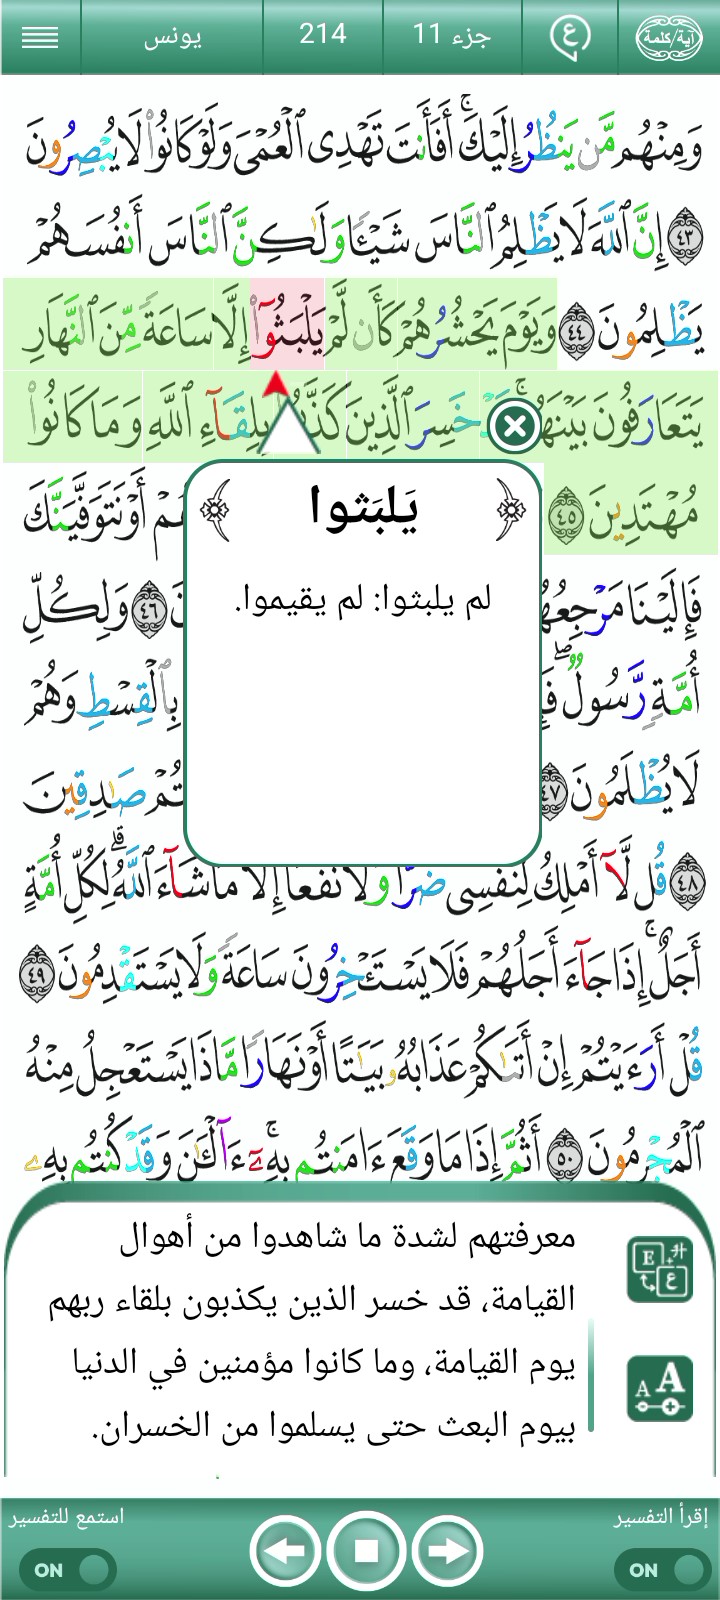 آية/كلمة
ع
جزء 11
214
يونس
وَمِنْهُم مَّن يَنظُرُ إِلَيْكَ ۚ أَفَأَنتَ تَهْدِى ٱلْعُمْىَ وَلَوْ كَانُوا۟ لَا يُبْصِرُونَ
٤٣ إِنَّ ٱللَّهَ لَا يَظْلِمُ ٱلنَّاسَ شَيْـًٔا وَلَـٰكِنَّ ٱلنَّاسَ أَنفُسَهُمْ
يَظْلِمُونَ ٤٤ وَيَوْمَ يَحْشُرُهُمْ كَأَن لَّمْ يَلْبَثُوٓا۟ إِلَّا سَاعَةً مِّنَ ٱلنَّهَارِ
يَتَعَارَفُونَ بَيْنَهُمْ ۚ خَسِرَ ٱلَّذِينَ كَذَّبُوا۟ بِلِقَآءِ ٱللَّهِ وَمَا كَانُوا۟
مُهْتَدِينَ ٤٥ أَوْ نَتَوَفَّيَنَّكَ
فَإِلَيْنَا مَرْجِعُهُمْ ٤٦ وَلِكُلِّ
أُمَّةٍ رَّسُولٌ ۖ بِٱلْقِسْطِ وَهُمْ
لَا يُظْلَمُونَ ٤٧ صَـٰدِقِينَ
٤٨ قُل لَّآ أَمْلِكُ لِنَفْسِى ضَرًّا وَلَا نَفْعًا إِلَّا مَا شَآءَ ٱللَّهُ ۗ لِكُلِّ أُمَّةٍ
أَجَلٌ ۚ إِذَا جَآءَ أَجَلُهُمْ فَلَا يَسْتَـْٔخِرُونَ سَاعَةً وَلَا يَسْتَقْدِمُونَ ٤٩
قُلْ أَرَءَيْتُمْ إِنْ أَتَىٰكُمْ عَذَابُهُۥ بَيَـٰتًا أَوْ نَهَارًا مَّاذَا يَسْتَعْجِلُ مِنْهُ
ٱلْمُجْرِمُونَ ٥٠ أَثُمَّ إِذَا مَا وَقَعَ ءَامَنتُم بِهِۦٓ ۚ ءَآلْـَٔـٰنَ وَقَدْ كُنتُم بِهِۦ
يَلبَثوا
لم يلبثوا: لم يقيموا.
معرفتهم لشدة ما شاهدوا من أهوال
القيامة، قد خسر الذين يكذبون بلقاء ربهم
يوم القيامة، وما كانوا مؤمنين في الدنيا
بيوم البعث حتى يسلموا من الخسران.
E
ع
A A
إقرأ التفسير
استمع للتفسير
ON
ON